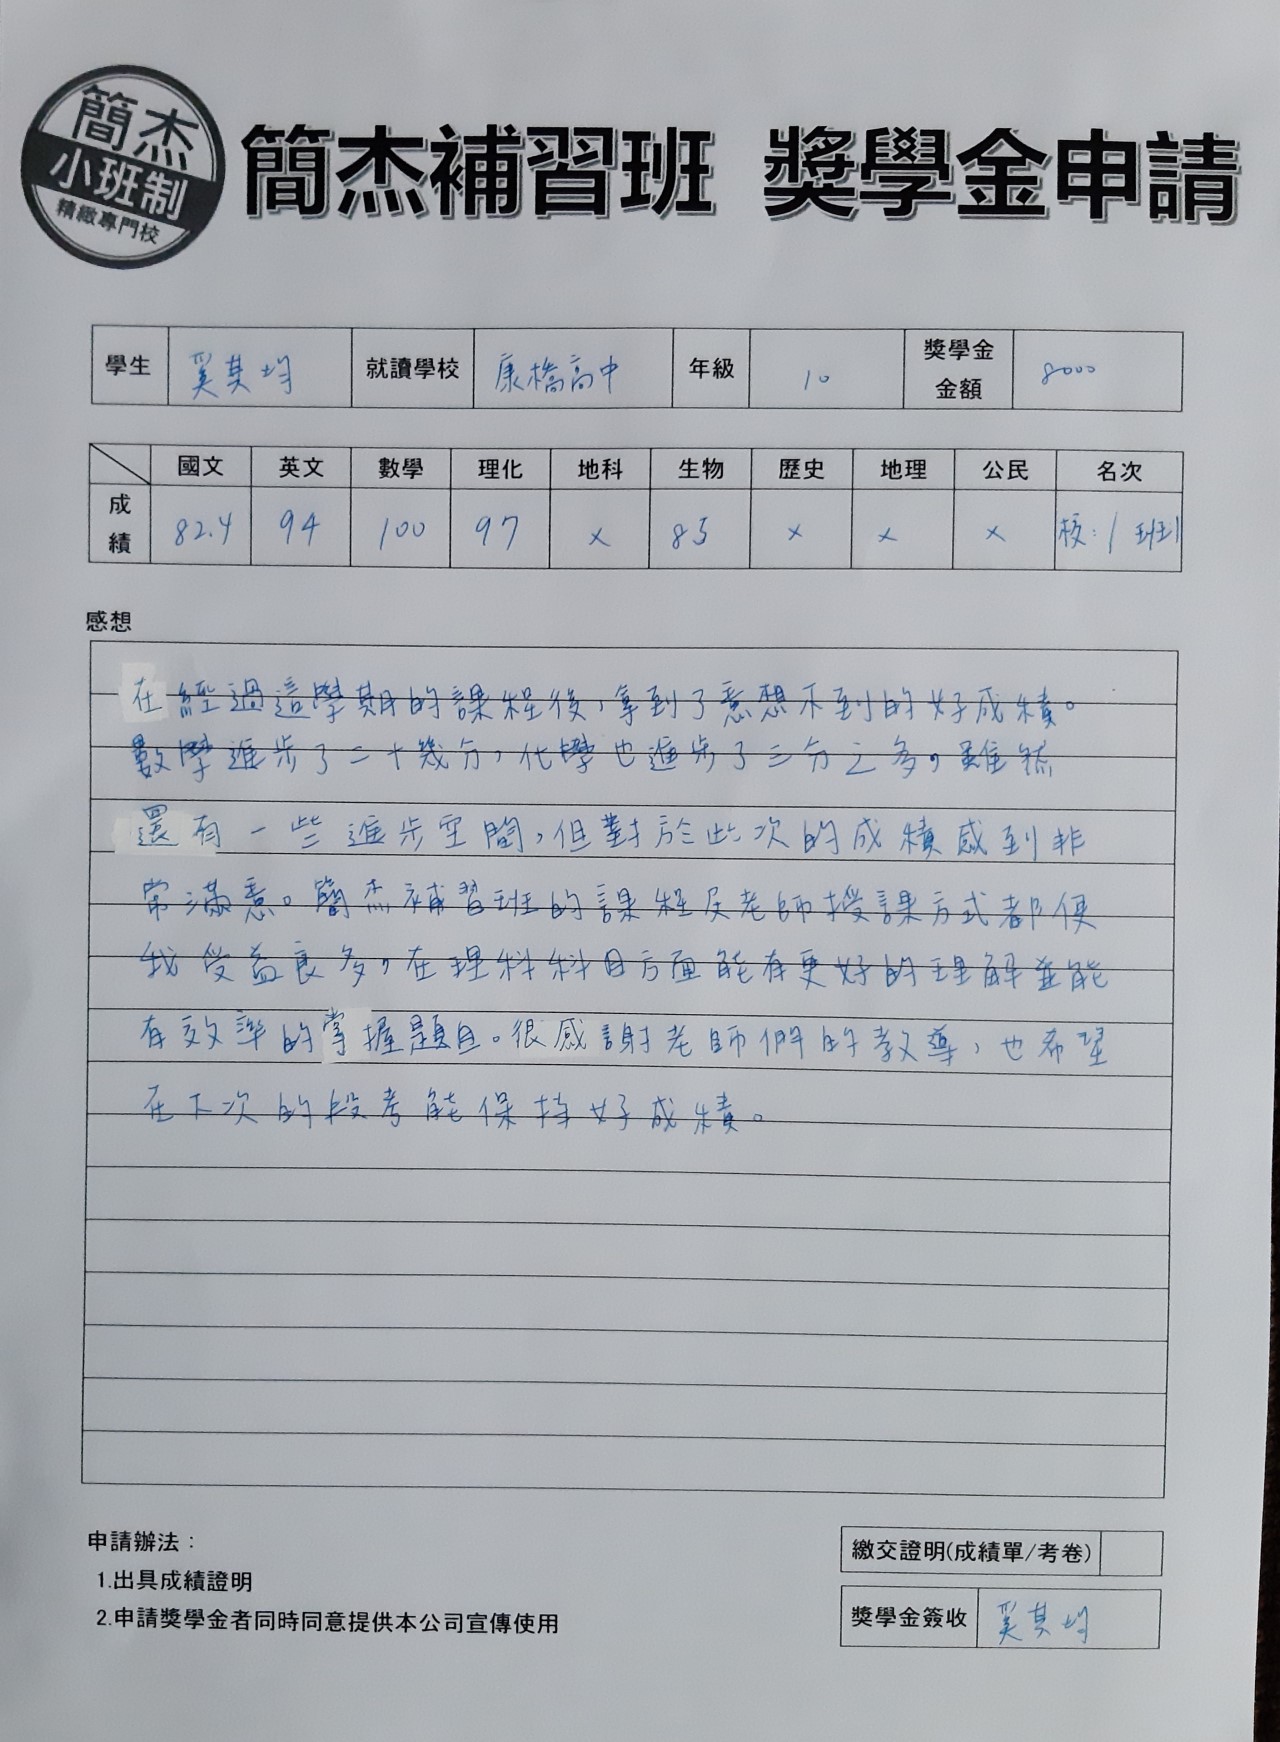 簡杰
小班制
精緻專門校
簡杰補習班 獎學金申請
學生 奚其均 就讀學校 康橋高中 年級 10 獎學金金額 8000
國文 英文 數學 理化 地科 生物 歷史 地理 公民 名次
成績 82.4 94 100 97 x 85 x x x 校:1 班1
感想
在經過這學期的課程後,拿到了意想不到的好成績。
數學進步了二十幾分,化學也進步了三分之多,雖然
還有一些進步空間,但對於此次的成績感到非
常滿意。簡杰補習班的課程及老師授課方式都使
我受益良多,在理科科目方面能有更好的理解並能
有效率的掌握題目。很感謝老師們的教導,也希望
在下次的段考能保持好成績。
申請辦法:
1.出具成績證明
2.申請獎學金者同時同意提供本公司宣傳使用
繳交證明(成績單/考卷)
獎學金簽收 奚其均